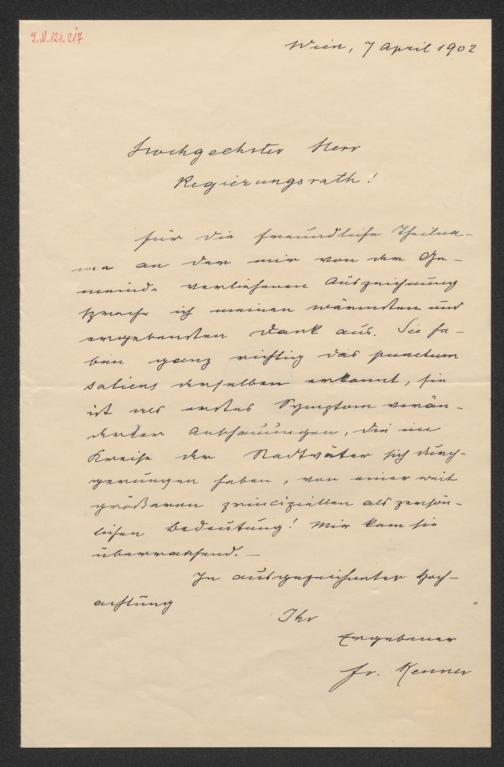 I.N. 121.217
Wien, 7 April 1902
Hochgeehrter Herr
Regierungsrath!
Für die freundliche Theilna-
me an der mir von der Ge-
meinde verliehenen Auszeichnung
spreche ich meinen wärmsten und
ergebensten Dank aus. Sie ha-
ben ganz richtig das punctum
saliens derselben erkannt, sie
ist als erstes Symptom verän-
derter Anschauungen, die im
Kreise der Stadtväter sich durch-
gerungen haben, von einer weit
größeren principiellen als persön-
lichen Bedeutung! Mir kam sie
überraschend. —
In ausgezeichneter Hoch-
achtung
Ihr
Ergebener
Fr. Kenner